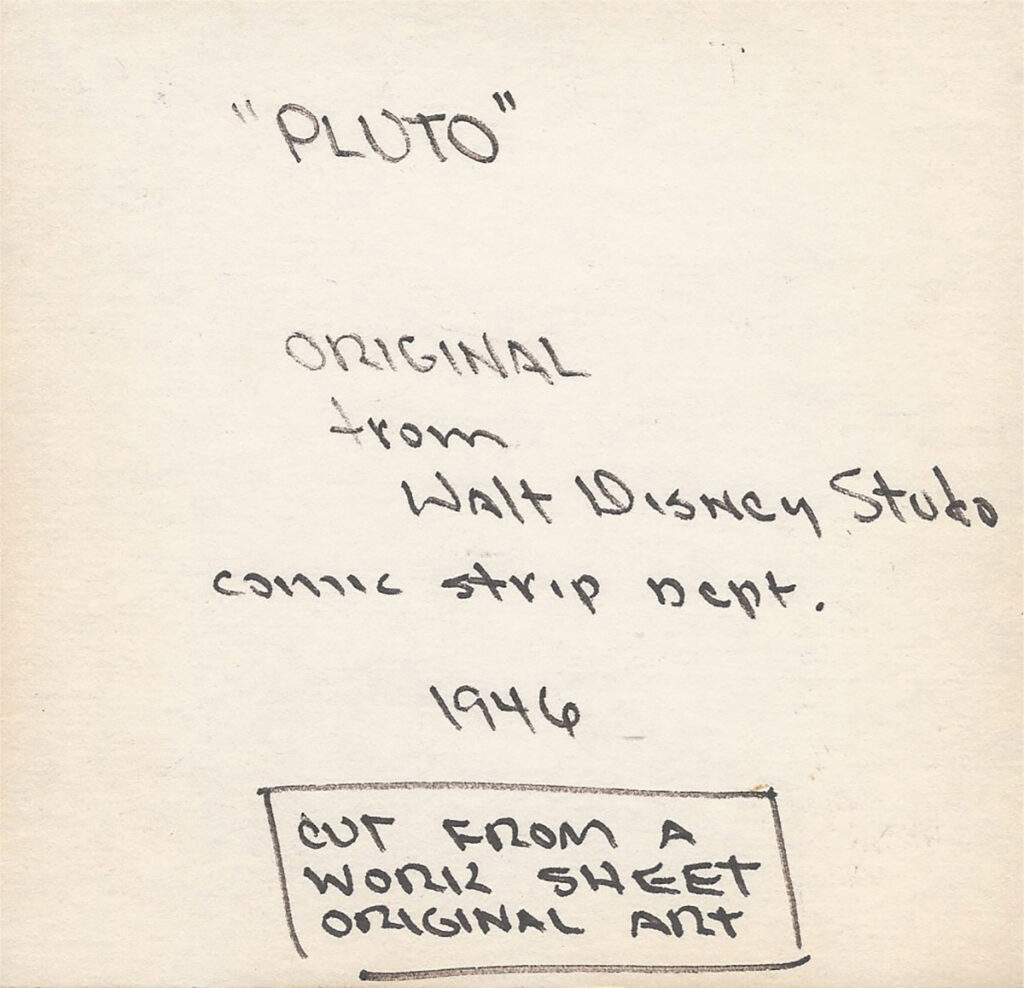 "PLUTO"
ORIGINAL
from
Walt Disney Studo
comic strip Dept.
1946
CUT FROM A
WORK SHEET
ORIGINAL ART